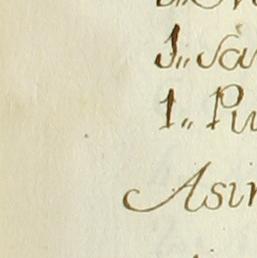 1.. sà
1.. Pu
Asin